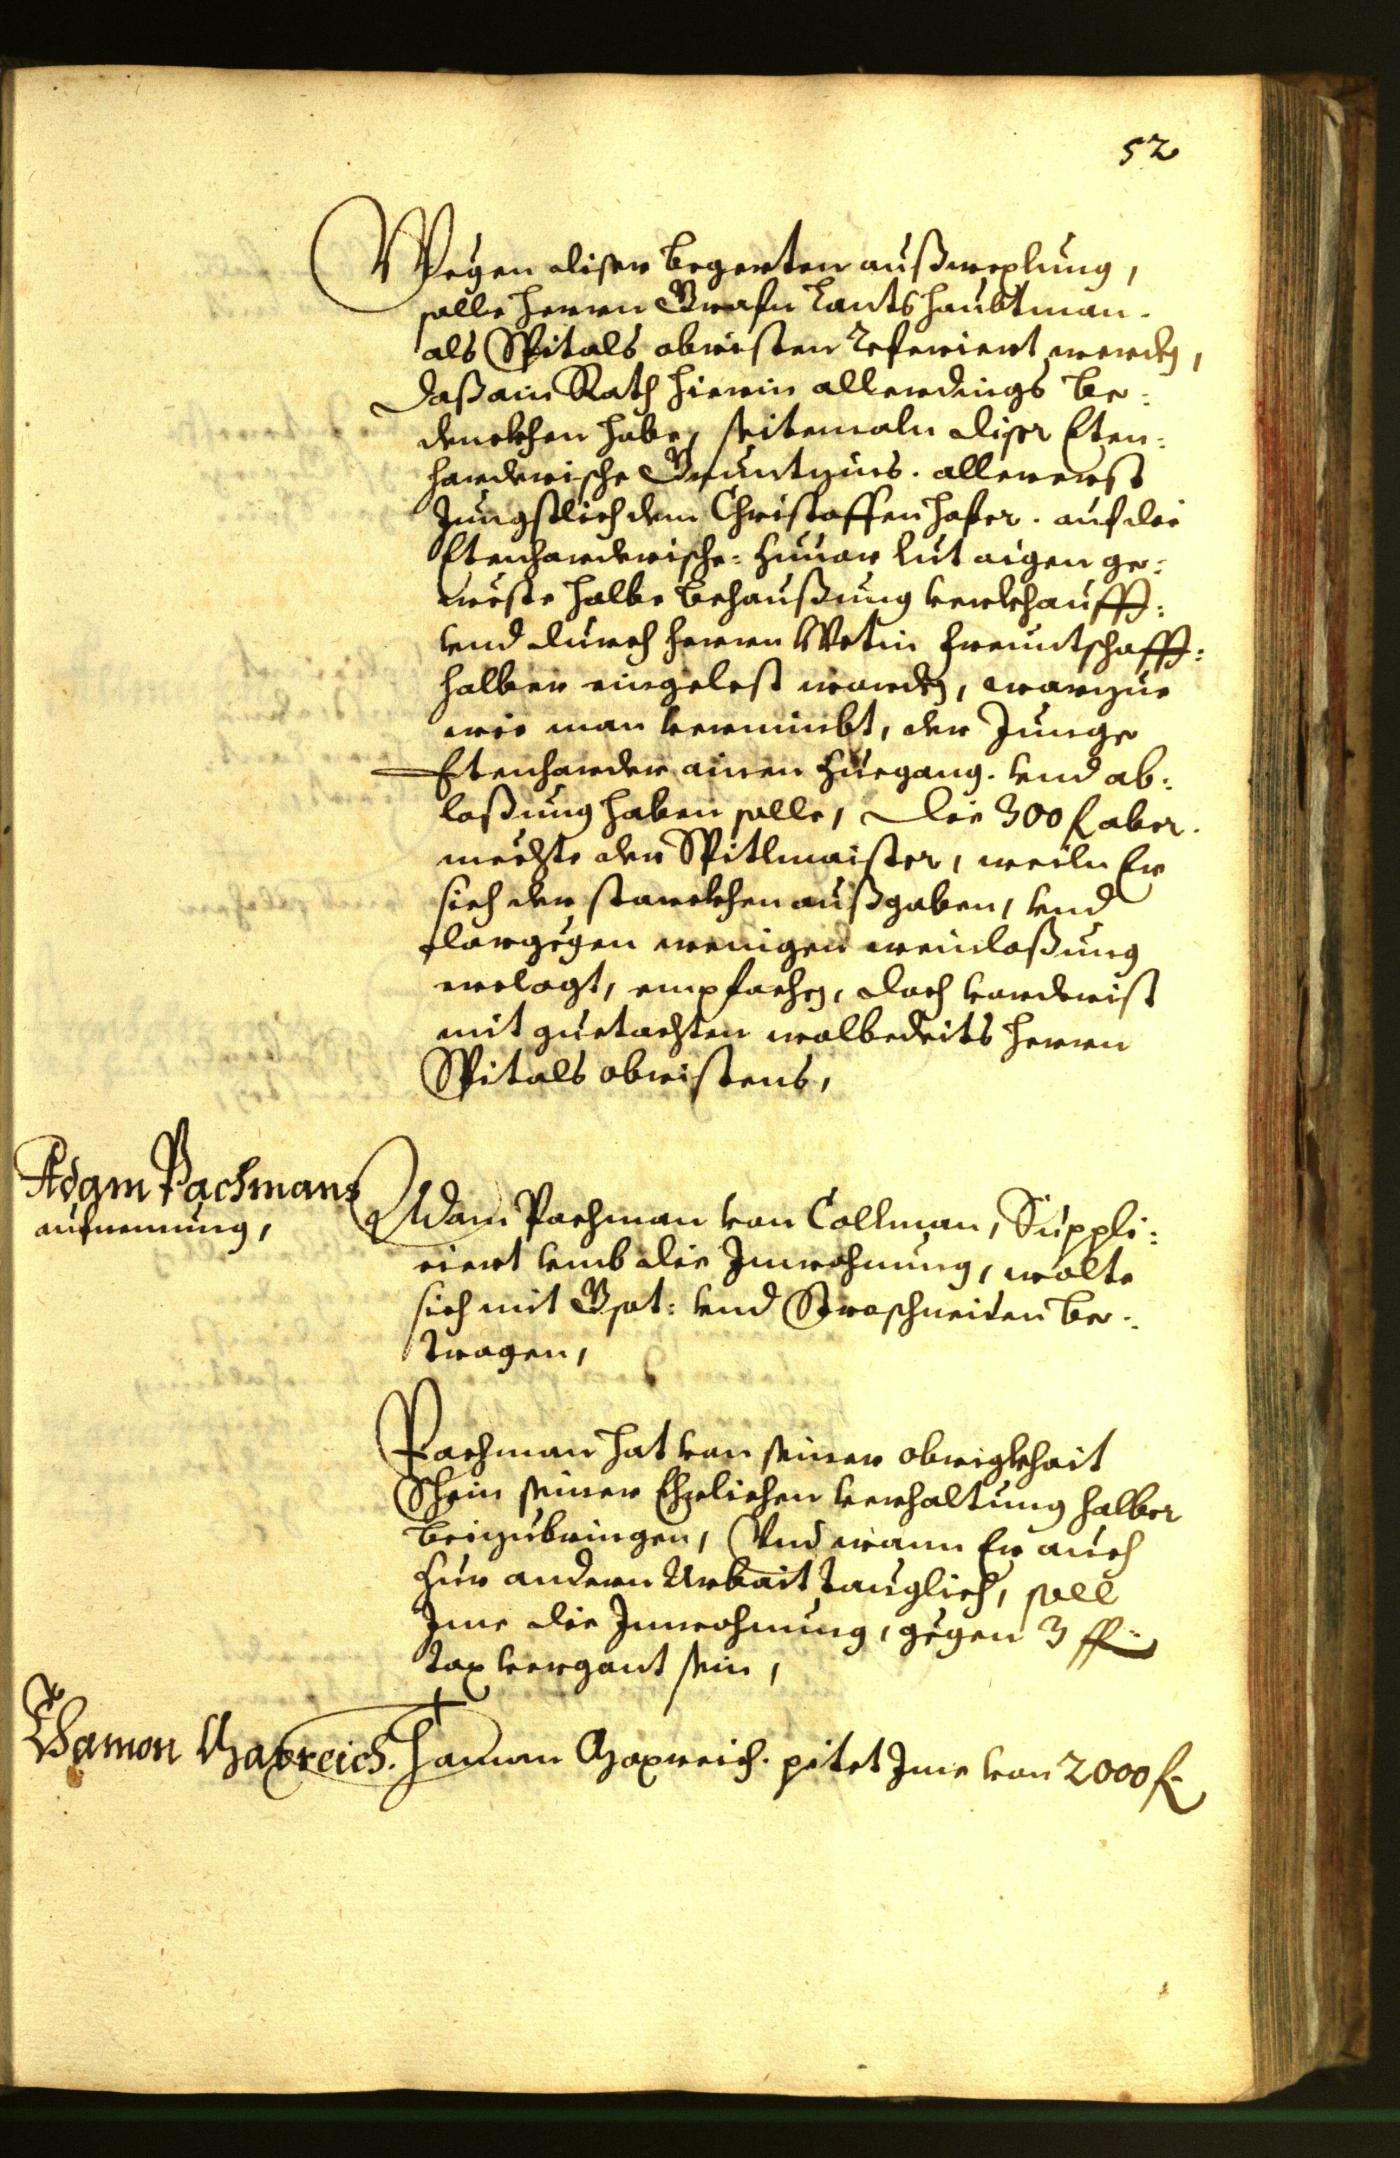 52
Wegen diser begerten außwexlung,
solle herrn Grafn Lantshaubtman.
als Spitals obristen referiert werden,
Daß ain Rath hierin allerdings be:
denckhen habe, seitemaln diser Eten:
harderische Gruntzins. allererst
Jungstlich dem Christoffen hofer. auf die
Etenharderische: hievor lut aigen ge:
weste halbe behaußung verkhaufft:
vnd durch herrn Wetin freuntschafft:
halber eingelest worden, warzue
wie man vernimbt, der Junge
Etenharder ainen zuegang. vnd ab:
loßung haben solle, Die 300 f aber.
mechte der Spitlmaister, weiln Er
sich der starckhen außgaben, vnd
dargegen wenigen weinloßung
erclagt, empfachen, doch vorderist
mit guetachten wolbedeits herrn
Spitals obristens,
Adam Pachmans
aufnemung,
Adam Pachman von Collman, Suppli:
ciert vmb die Inwohnung, wolte
sich mit Gsot: vnd Stroschneiden be:
tragen,
Pachman hat von seiner obrigkhait
Schein seiner Ehrlichen verhaltung halber
beizubringen, Vnd wann Er auch
zur andern Arbait tauglich, soll
Ime die Inwohnung, gegen 3 ff
tax vergont sein,
Thamon Gaxreich.
Thamon Gaxreich. pitet Ime von 2000 f